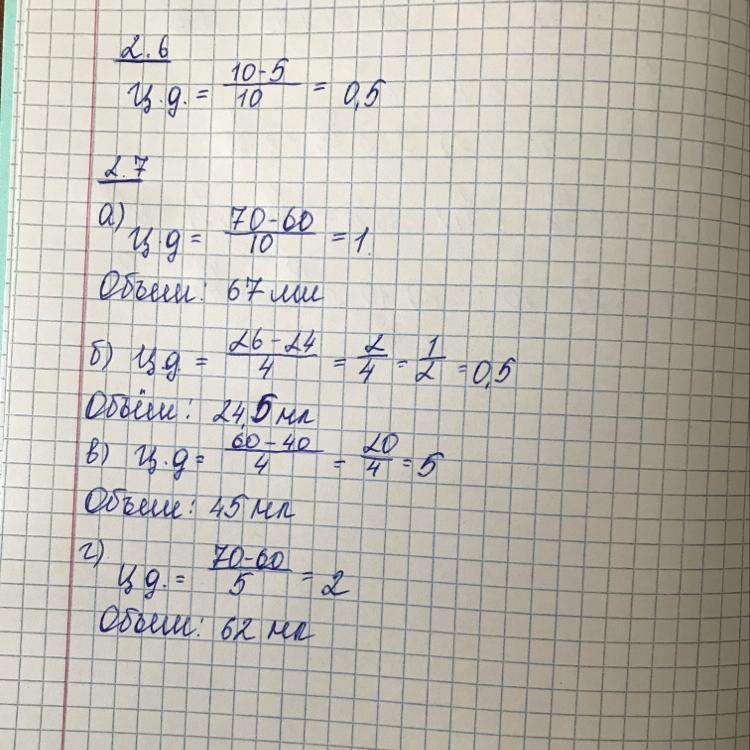 2.6
Ц.д. = 10-5/10 = 0,5
2.7
а) Ц.д = 70-60/10 = 1.
Объем: 67 мл
б) Ц.д = 26-24/4 = 2/4 = 1/2 = 0,5
Объём: 24,5 мл
в) Ц.д = 60-40/4 = 20/4 = 5
Объем: 45 мл
г) Ц.д. = 70-60/5 = 2
Объем: 62 мл